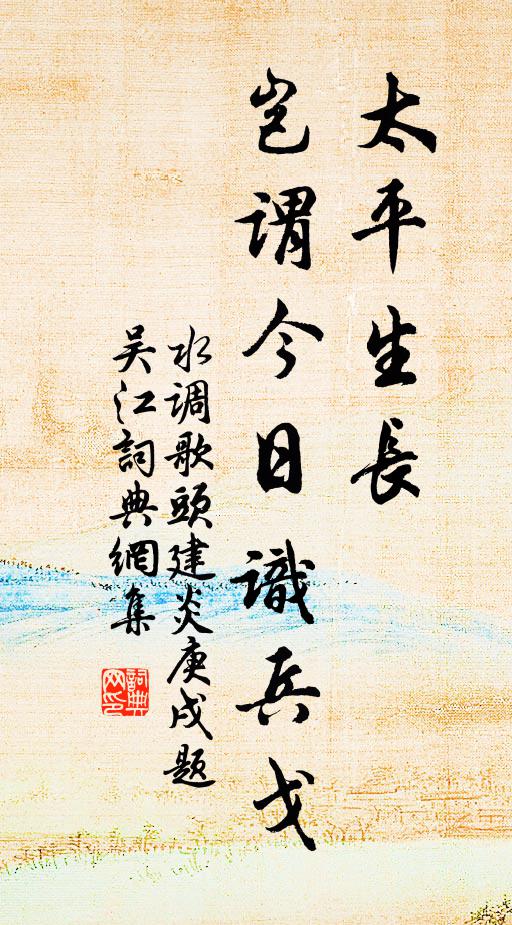 太平生長
岂謂今日識兵戈
水调歌頭建炎庚戌题
吴江詞典網集
詞典網印